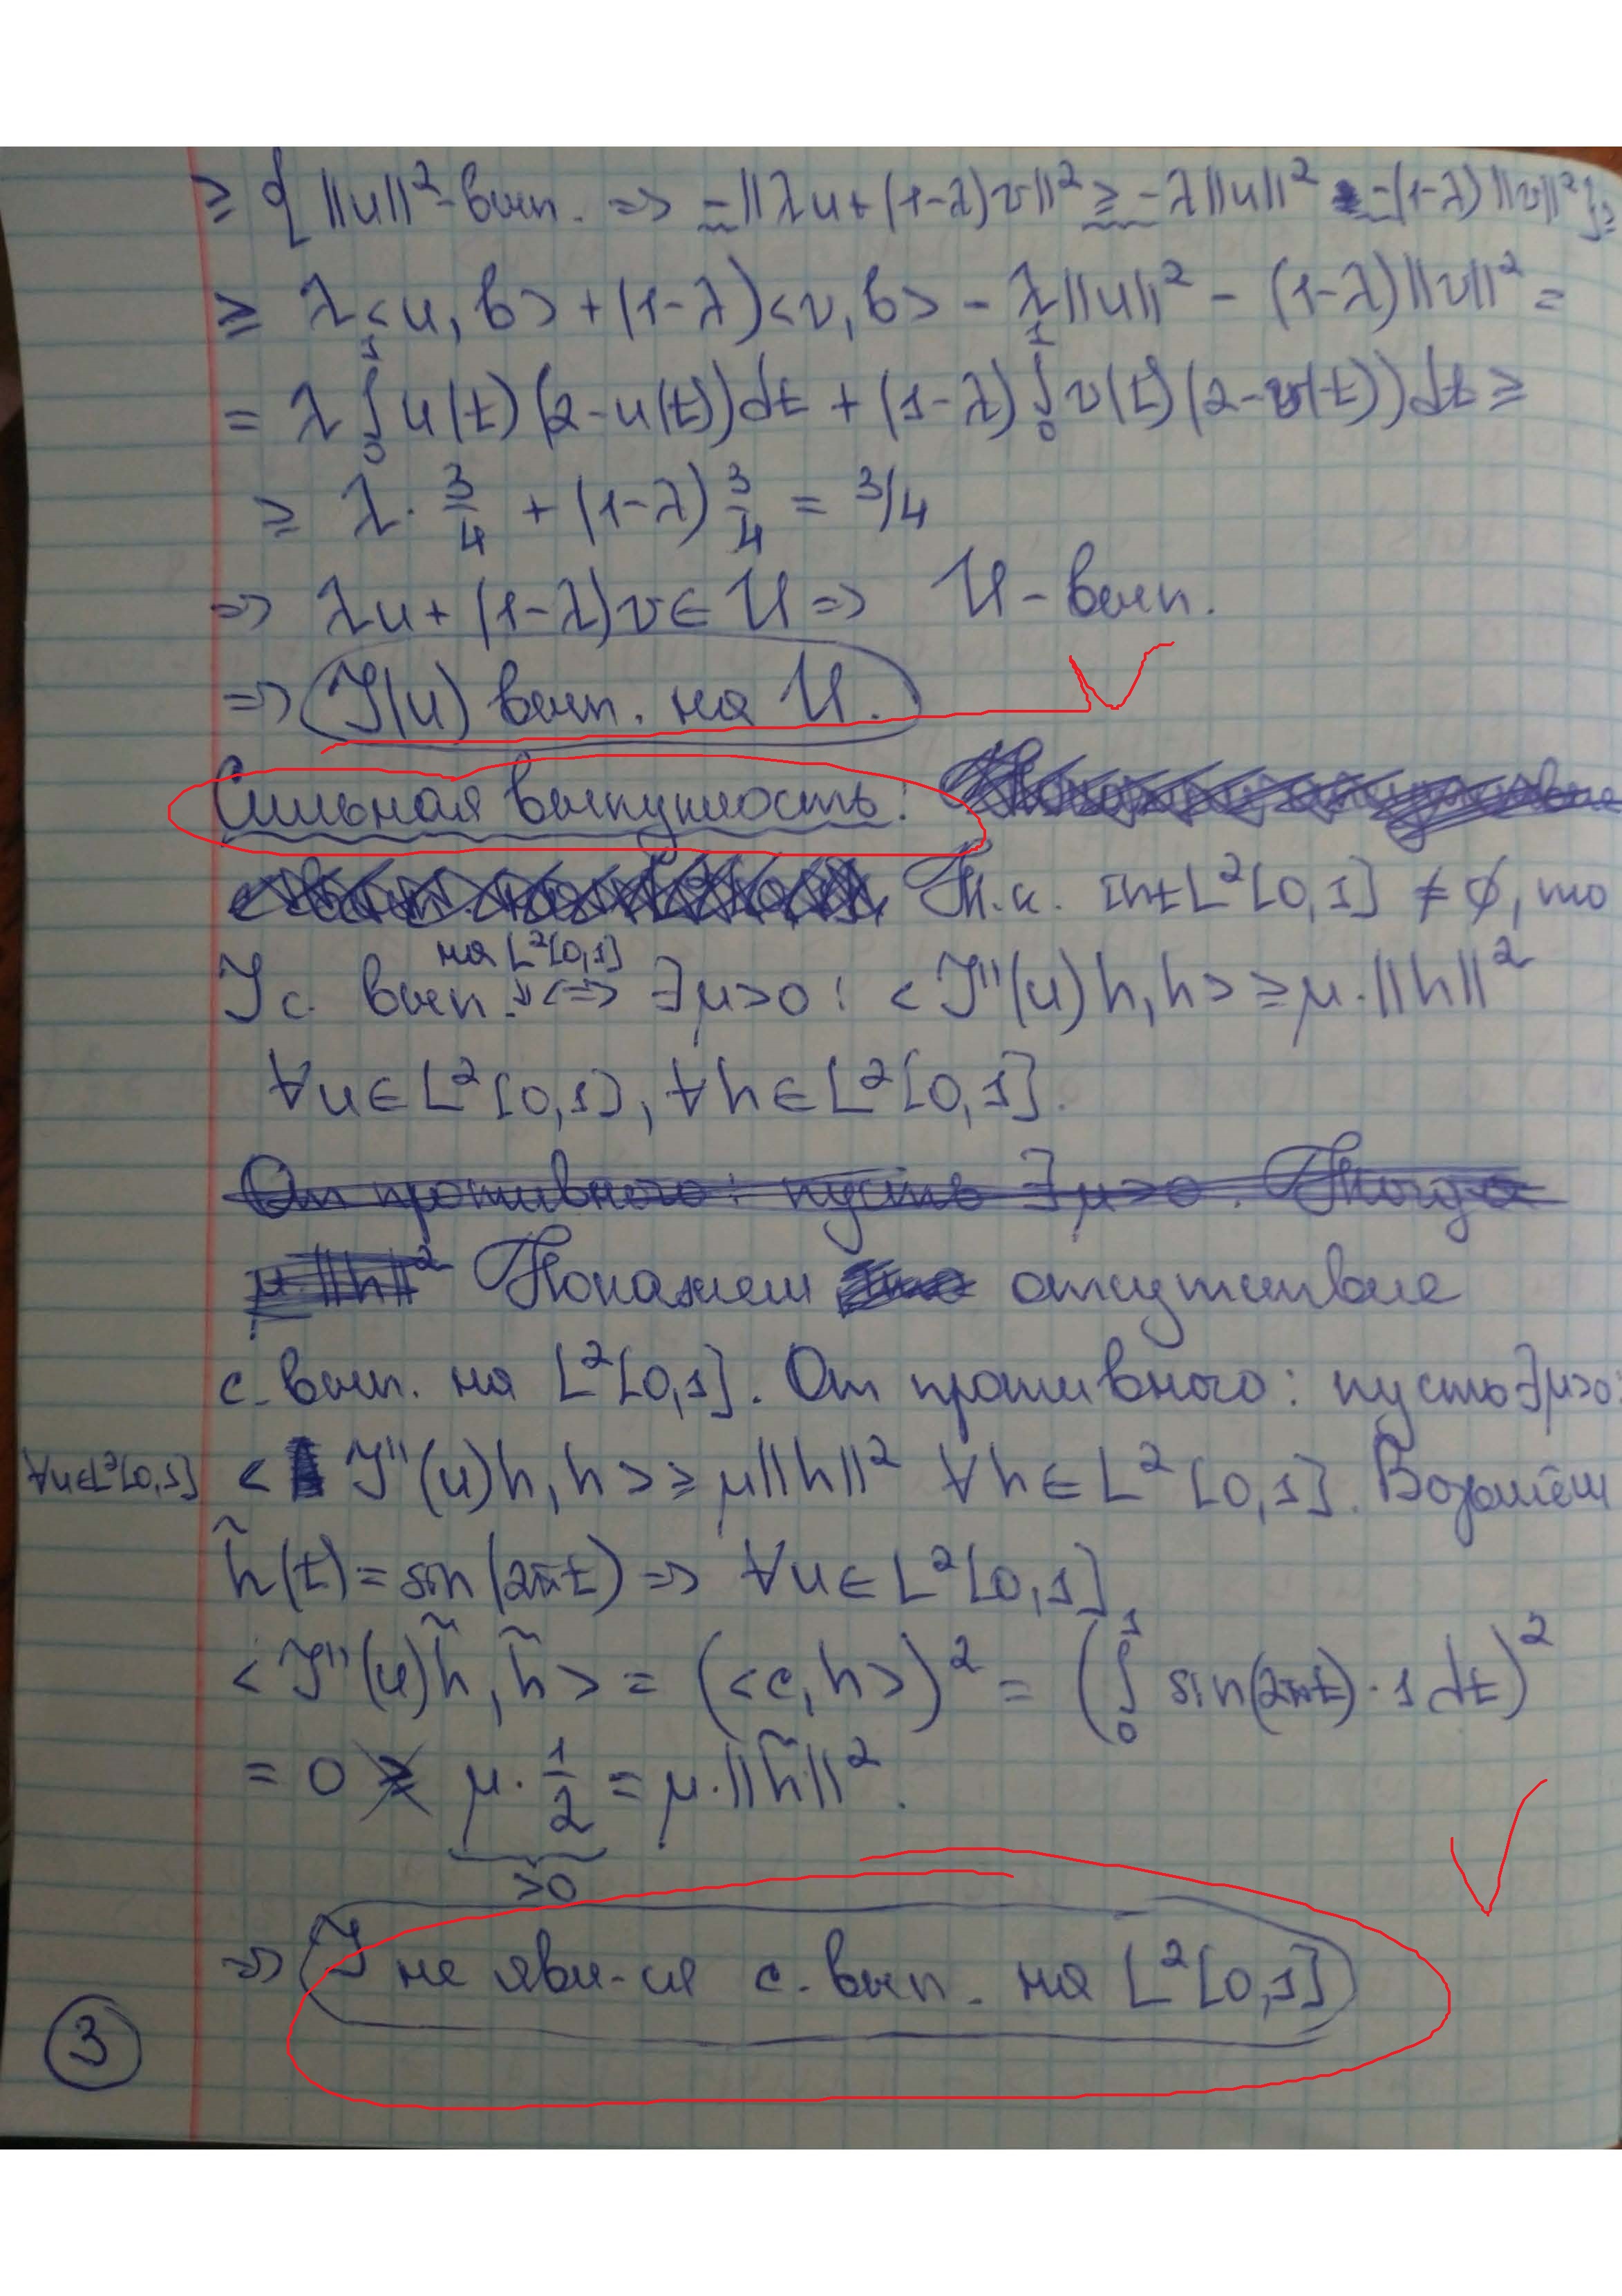 ≥ { ||u||² - вып. => -||λu+(1-λ)v||² ≥ -λ||u||² -(1-λ)||v||² } ≥
≥ λ<u, b> + (1-λ)<v, b> - λ||u||² - (1-λ)||v||² =
= λ ∫₀¹ u(t)(2-u(t))dt + (1-λ) ∫₀¹ v(t)(2-v(t))dt ≥
≥ λ · 3/4 + (1-λ) 3/4 = 3/4
=> λu + (1-λ)v ∈ U => U - вып.
=> J(u) вып. на U.
Сильная выпуклость:
Т.к. int L²[0,1] ≠ ∅, то
на L²[0,1]
J с. вып. <=> ∃μ>0 : <J''(u)h, h> ≥ μ·||h||²
∀u ∈ L²[0,1], ∀h ∈ L²[0,1].
От противного: пусть ∃μ>0. Тогда
μ·||h||² Покажем отсутствие
с. вып. на L²[0,1]. От противного: пусть ∃μ>0:
∀u∈L²[0,1] <J''(u)h, h> ≥ μ||h||² ∀h ∈ L²[0,1]. Возьмём
h̃(t) = sin(2πt) => ∀u ∈ L²[0,1]
<J''(u)h̃, h̃> = (<c, h>)² = (∫₀¹ sin(2πt)·1 dt)²
= 0 ≱ μ · 1/2 = μ·||h̃||².
>0
=> J не явл-ся с. вып. на L²[0,1]
3